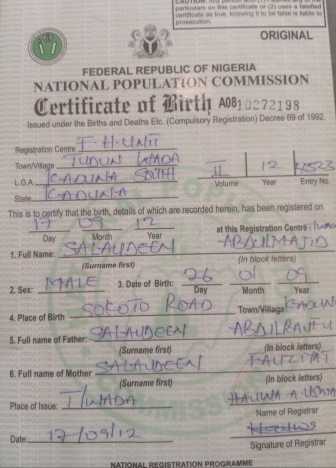 particulars on this certificate or (2) uses a falsified
certificate as true, knowing it to be false is liable to
prosecution.
ORIGINAL
FEDERAL REPUBLIC OF NIGERIA
NATIONAL POPULATION COMMISSION
Certificate of Birth A0810272198
Issued under the Births and Deaths Etc. (Compulsory Registration) Decree 69 of 1992.
Registration Centre T-H-UNIT
Town/Village TUDUN WADA
L.G.A. KADUNA SOUTH II 12
Volume Year Entry No.
State KADUNA
This is to certify that the birth, details of which are recorded herein, has been registered on
17 09 12 at this Registration Centre
Day Month Year
1. Full Name: SALAUDEEN ABDULMAJID
(Surname first) (In block letters)
2. Sex: MALE 3. Date of Birth: 26 01 09
Day Month Year
4. Place of Birth SOKOTO ROAD Town/Village
5. Full name of Father: SALAUDEEN
(Surname first) (In block letters)
6. Full name of Mother SALAUDEEN
(Surname first) (In block letters)
Place of Issue: T/WADA
Name of Registrar
Date 17/09/12
Signature of Registrar
NATIONAL REGISTRATION PROGRAMME